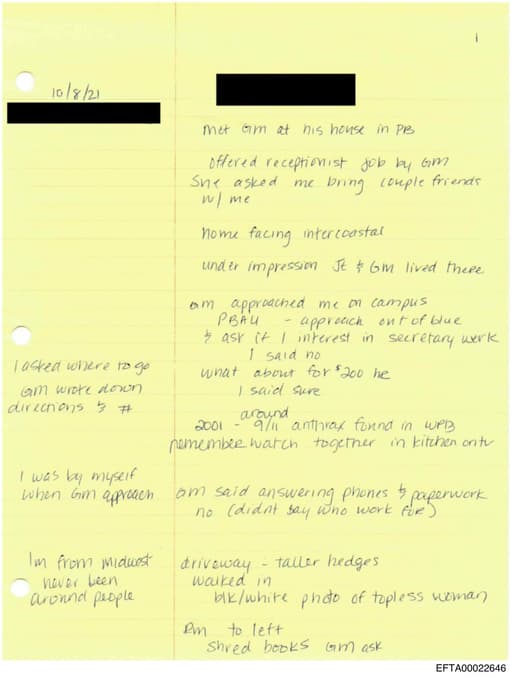 1
10/8/21
met GM at his house in PB
offered receptionist job by GM
She asked me bring couple friends
w/ me
home facing intercoastal
under impression JE & GM lived there
GM approached me on campus
PBAU - approach out of blue
& ask if I interest in secretary work
I said no
I asked where to go
what about for $200 he
GM wrote down
I said sure
directions & #
around
2001 - 9/11 anthrax found in WPB
remember watch together in kitchen on tv
I was by myself
when GM approach
GM said answering phones & paperwork
no (didnt say who work for)
Im from midwest
never been
around people
driveway - taller hedges
walked in
blk/white photo of topless woman
Rm to left
Shred books GM ask
EFTA00022646